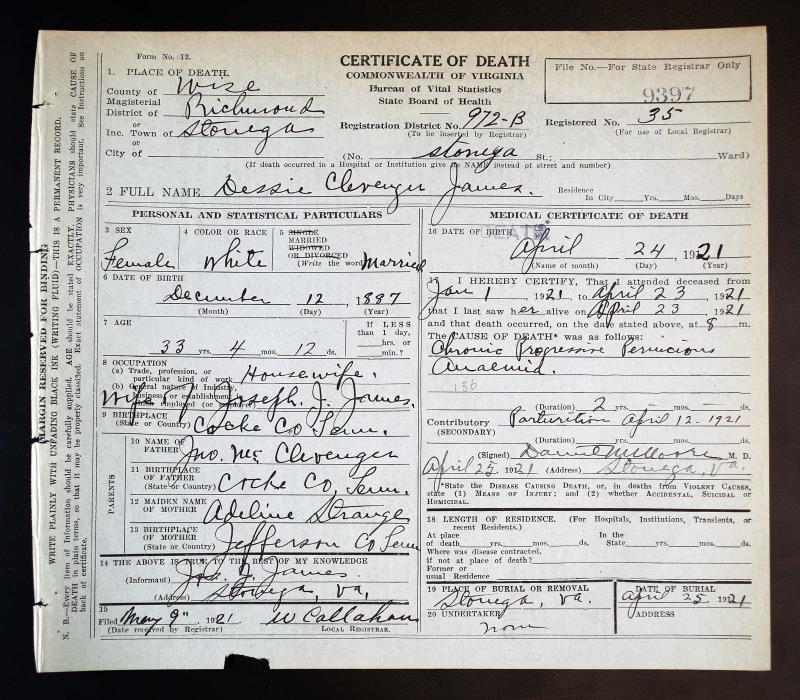 Form No. 12.
CERTIFICATE OF DEATH
COMMONWEALTH OF VIRGINIA
Bureau of Vital Statistics
State Board of Health
File No.—For State Registrar Only
9397
1. PLACE OF DEATH.
County of Wise
Magisterial District of Richmond
or
Inc. Town of Stonega
or
City of
Registration District No. 972-B
(To be inserted by Registrar)
Registered No. 35
(For use of Local Registrar)
(No. Stonega St.; Ward)
(If death occurred in a Hospital or Institution give its NAME instead of street and number)
2 FULL NAME Dessie Clevenger James.
Residence In City Yrs. Mos. Days
PERSONAL AND STATISTICAL PARTICULARS
3 SEX
Female
4 COLOR OR RACE
White
5 SINGLE
MARRIED
WIDOWED
OR DIVORCED
(Write the word) Married
6 DATE OF BIRTH
December 12, 1887
(Month) (Day) (Year)
7 AGE
33 yrs. 4 mos. 12 ds.
If LESS than 1 day, hrs. or min.?
8 OCCUPATION
(a) Trade, profession, or particular kind of work Housewife.
(b) General nature of Industry, business or establishment in which employed (or employer)
Wife of Joseph J. James.
9 BIRTHPLACE
(State or Country) Cocke Co Tenn.
PARENTS
10 NAME OF FATHER
Jno. Mc Clevenger
11 BIRTHPLACE OF FATHER
(State or Country) Cocke Co, Tenn.
12 MAIDEN NAME OF MOTHER
Adeline Strange
13 BIRTHPLACE OF MOTHER
(State or Country) Jefferson Co Tenn
14 THE ABOVE IS TRUE TO THE BEST OF MY KNOWLEDGE
(Informant) Jos. J. James.
(Address) Stonega, Va,
15
Filed May 9" 1921 W Callahan
(Date received by Registrar) LOCAL REGISTRAR.
MEDICAL CERTIFICATE OF DEATH
16 DATE OF BIRTH DEATH
April 24, 1921
(Name of month) (Day) (Year)
17 I HEREBY CERTIFY, That I attended deceased from
Jan 1, 1921, to April 23, 1921
that I last saw her alive on April 23, 1921
and that death occurred, on the date stated above, at 8 m.
The CAUSE OF DEATH* was as follows:
Chronic Progressive Pernicious
Anaemia.
(Duration) 2 yrs. mos. ds.
Contributory (SECONDARY) Parturition April 12-1921
(Duration) yrs. mos. ds.
(Signed) M. D.
April 25, 1921 (Address) Stonega, Va.
*State the DISEASE CAUSING DEATH, or, in deaths from VIOLENT CAUSES,
state (1) MEANS OF INJURY; and (2) whether ACCIDENTAL, SUICIDAL or
HOMICIDAL.
18 LENGTH OF RESIDENCE. (For Hospitals, Institutions, Transients, or recent Residents.)
At place of death yrs. mos. ds. In the State yrs. mos. ds.
Where was disease contracted, if not at place of death?
Former or usual Residence
19 PLACE OF BURIAL OR REMOVAL
Stonega, Va.
DATE OF BURIAL
April 25, 1921
20 UNDERTAKER
none
ADDRESS
MARGIN RESERVED FOR BINDING
WRITE PLAINLY WITH UNFADING BLACK INK (WRITING FLUID)—THIS IS A PERMANENT RECORD.
N. B.—Every item of Information should be carefully supplied. AGE should be stated EXACTLY. PHYSICIANS should state CAUSE OF
DEATH in plain terms, so that it may be properly classified. Exact statement of OCCUPATION is very important. See Instructions on
back of certificate.